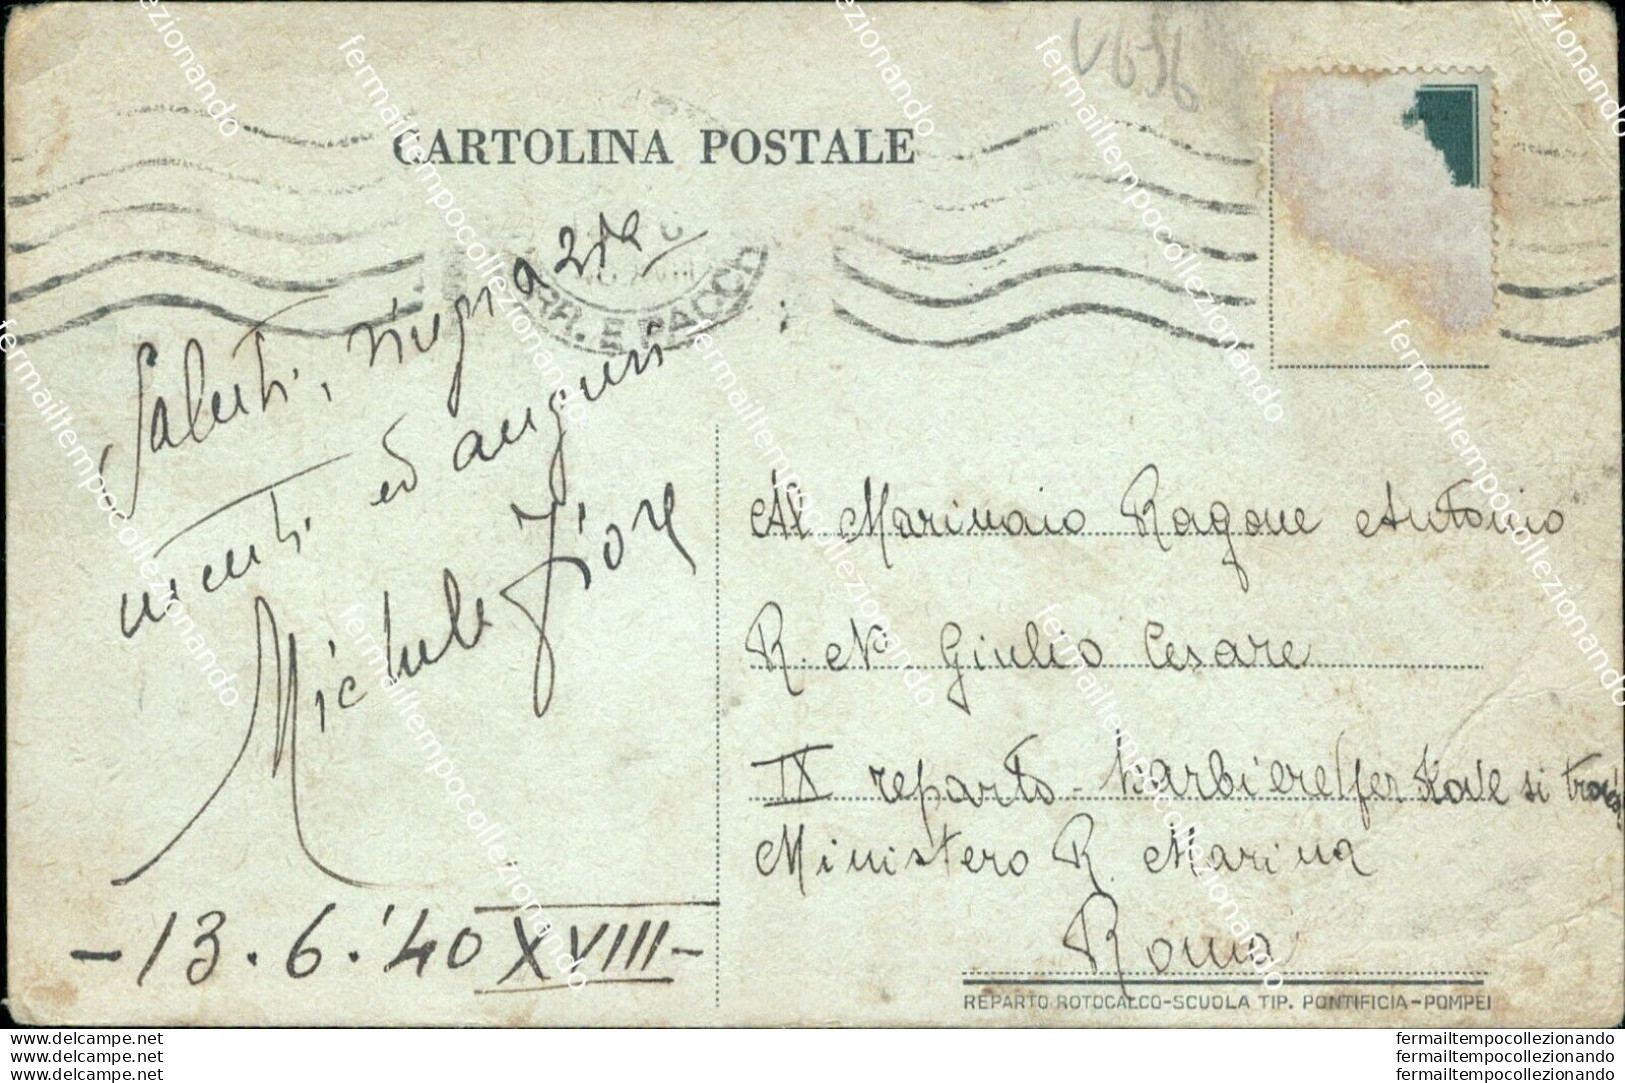 V636
CARTOLINA POSTALE
CORR. E PACCHI
Saluti, ringrazia
menti ed auguri
Michele Fiore
-13.6.'40 XVIII-
Al Marinaio Ragone Antonio
R. N. Giulio Cesare
IX reparto - barbiere (per dove si trova)
Ministero R. Marina
Roma
REPARTO ROTOCALCO-SCUOLA TIP. PONTIFICIA-POMPEI
www.delcampe.net fermailtempocollezionando
www.delcampe.net fermailtempocollezionando
www.delcampe.net fermailtempocollezionando